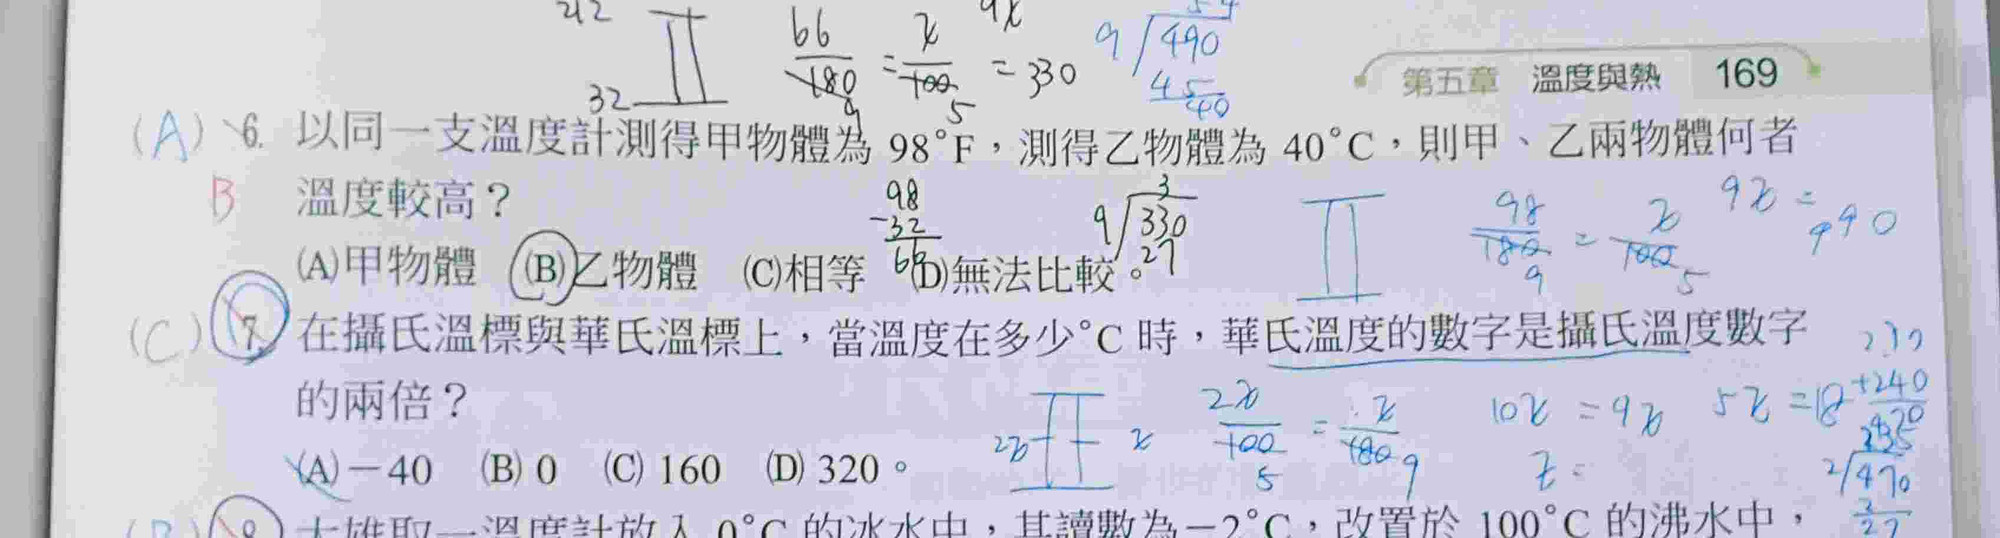 212
66/180 = x/100 = 330
9x
9 490
45
40
9
5
32
第五章 溫度與熱 169
(A) 6. 以同一支溫度計測得甲物體為 98°F，測得乙物體為 40°C，則甲、乙兩物體何者
B 溫度較高？
98
-32
66
3
9 330
27
98/180 = x/100
9
5
9x =
990
(A)甲物體 (B)乙物體 (C)相等 (D)無法比較。
(C) 7. 在攝氏溫標與華氏溫標上，當溫度在多少°C 時，華氏溫度的數字是攝氏溫度數字
的兩倍？
2x x
2x/100 = x/180
5
9
10x = 9x
5x = 18
+240
2 470
(A)－40 (B) 0 (C) 160 (D) 320。
8 大雄取一溫度計放入 0°C 的冰水中，其讀數為－2°C，改置於 100°C 的沸水中，